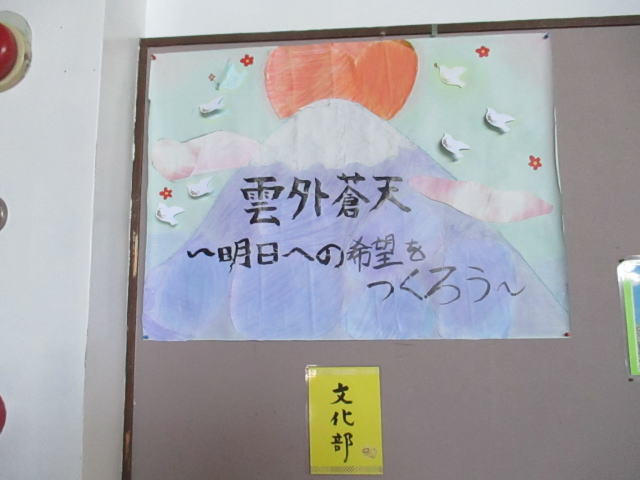 雲外蒼天
～明日への希望を
つくろう～
文化部